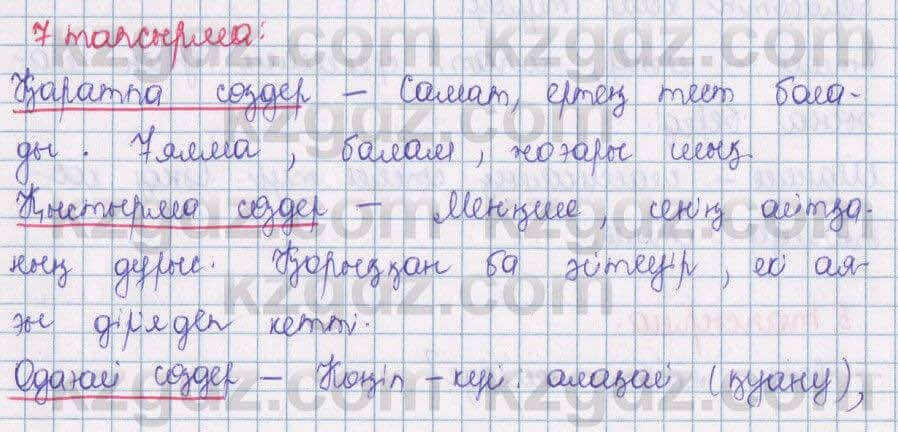 7 тапсырма:
Қаратпа сөздер – Самат, ертең тест бола-
ды. Ұялма, балам, жоғары шық.
Қыстырма сөздер – Меніңше, сенің айтқа-
ның дұрыс. Қорыққан ба әйтеуір, екі ая-
ғы дірдеп кетті.
Одағай сөздер – Көңіл-күй: алақай (қуану),